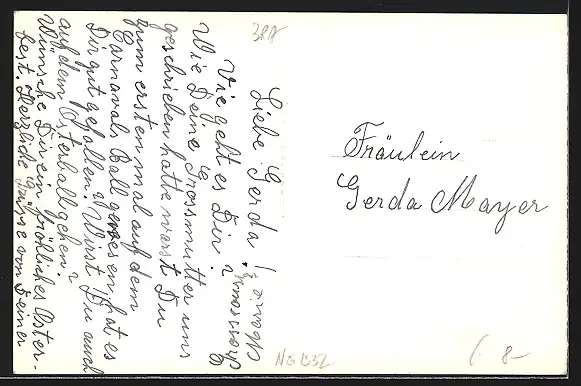 Liebe Gerda!
Wie geht es Dir.
Wie Deine Grossmutter uns
geschrieben hatte warst Du
zum ersten mal auf dem
Carnavals Ball gewesen, hat es
Dir gut gefallen? Wirst Du auch
auf dem Osterball gehen?
Wünsche Dir ein fröhliches Oster-
fest. Herzliche Grüsse von Deiner
Grossmama
Fräulein
Gerda Mayer
8-